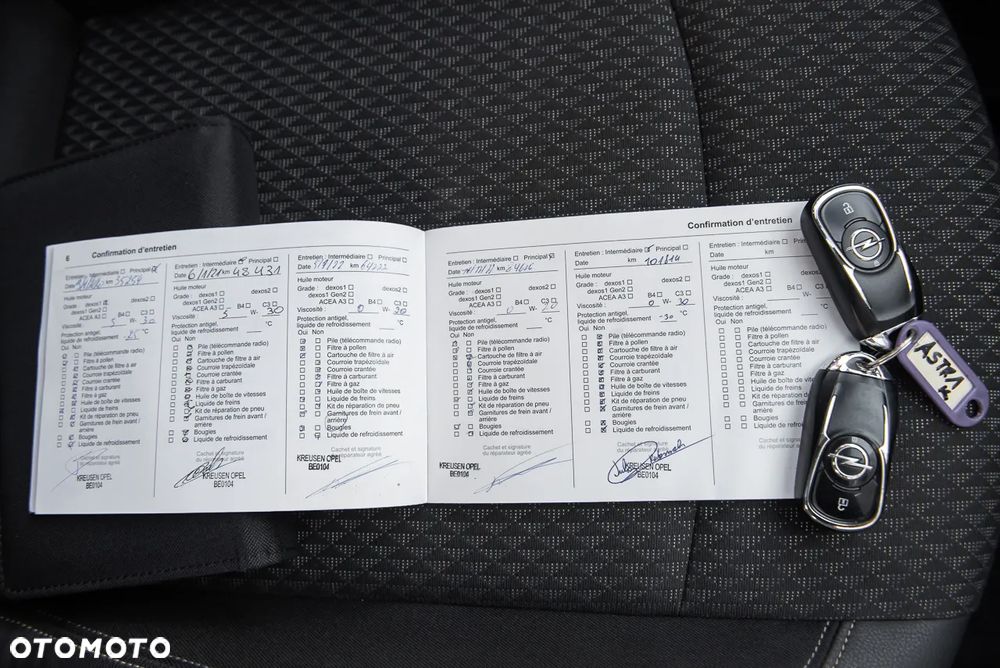 6 Confirmation d'entretien
Entretien : Intermédiaire ☐ Principal
Date km
Huile moteur
Grade : dexos1 dexos2 ☐
dexos1 Gen2 ☐
ACEA A3 ☐ B4 ☐ C3 ☐
Viscosité : 5 W- 30
Protection antigel,
liquide de refroidissement °C
Oui Non
Pile (télécommande radio)
Filtre à pollen
Cartouche de filtre à air
Courroie trapézoïdale
Courroie crantée
Filtre à carburant
Filtre à gaz
Huile de boîte de vitesses
Liquide de freins
Kit de réparation de pneu
Garnitures de frein avant /
arrière
Bougies
Liquide de refroidissement
Cachet et signature
du réparateur agréé
KREUSEN OPEL
BE0104
Entretien : Intermédiaire Principal ☐
Date 6/1/21 km 48431
Huile moteur
Grade : dexos1 ☐ dexos2 ☐
dexos1 Gen2 ☐
ACEA A3 ☐ B4 ☐ C3 ☐
Viscosité : 5 W- 30
Protection antigel,
liquide de refroidissement °C
Oui Non
Pile (télécommande radio)
Filtre à pollen
Cartouche de filtre à air
Courroie trapézoïdale
Courroie crantée
Filtre à carburant
Filtre à gaz
Huile de boîte de vitesses
Liquide de freins
Kit de réparation de pneu
Garnitures de frein avant /
arrière
Bougies
Liquide de refroidissement
Cachet et signature
du réparateur agréé
KREUSEN OPEL
BE0104
Entretien : Intermédiaire ☐ Principal ☐
Date km
Huile moteur
Grade : dexos1 ☐ dexos2 ☐
dexos1 Gen2 ☐
ACEA A3 ☐ B4 ☐ C3 ☐
Viscosité : 0 W-
Protection antigel,
liquide de refroidissement °C
Oui Non
Pile (télécommande radio)
Filtre à pollen
Cartouche de filtre à air
Courroie trapézoïdale
Courroie crantée
Filtre à carburant
Filtre à gaz
Huile de boîte de vitesses
Liquide de freins
Kit de réparation de pneu
Garnitures de frein avant /
arrière
Bougies
Liquide de refroidissement
Cachet et signature
du réparateur agréé
KREUSEN OPEL
BE0104
Confirmation d'entretien
Entretien : Intermédiaire ☐ Principal
Date km
Huile moteur
Grade : dexos1 ☐ dexos2 ☐
dexos1 Gen2 ☐
ACEA A3 ☐ B4 ☐ C3 ☐
Viscosité : 0 W- 20
Protection antigel,
liquide de refroidissement °C
Oui Non
Pile (télécommande radio)
Filtre à pollen
Cartouche de filtre à air
Courroie trapézoïdale
Courroie crantée
Filtre à carburant
Filtre à gaz
Huile de boîte de vitesses
Liquide de freins
Kit de réparation de pneu
Garnitures de frein avant /
arrière
Bougies
Liquide de refroidissement
Cachet et signature
du réparateur agréé
KREUSEN OPEL
BE0104
Entretien : Intermédiaire Principal ☐
Date km 101814
Huile moteur
Grade : dexos1 ☐ dexos2 ☐
dexos1 Gen2 ☐
ACEA A3 ☐ B4 ☐ C3 ☐
Viscosité : 0 W- 30
Protection antigel,
liquide de refroidissement -30 °C
Oui Non
Pile (télécommande radio)
Filtre à pollen
Cartouche de filtre à air
Courroie trapézoïdale
Courroie crantée
Filtre à carburant
Filtre à gaz
Huile de boîte de vitesses
Liquide de freins
Kit de réparation de pneu
Garnitures de frein avant /
arrière
Bougies
Liquide de refroidissement
Cachet et signature
du réparateur agréé
KREUSEN OPEL
BE0104
Entretien : Intermédiaire ☐
Date km
Huile moteur
Grade : dexos1 ☐
dexos1 Gen2 ☐
ACEA A3 ☐
Viscosité :
Protection antigel,
liquide de refroidissement
Oui Non
Filtre à pollen
Cartouche de filtre
Courroie trapézoïdale
Courroie crantée
Filtre à carburant
Filtre à gaz
Huile de boîte de
Liquide de freins
Kit de réparation
Garnitures de frein
arrière
Bougies
Liquide de
Cachet et
du réparateur
ASTRA
K
OTOMOTO